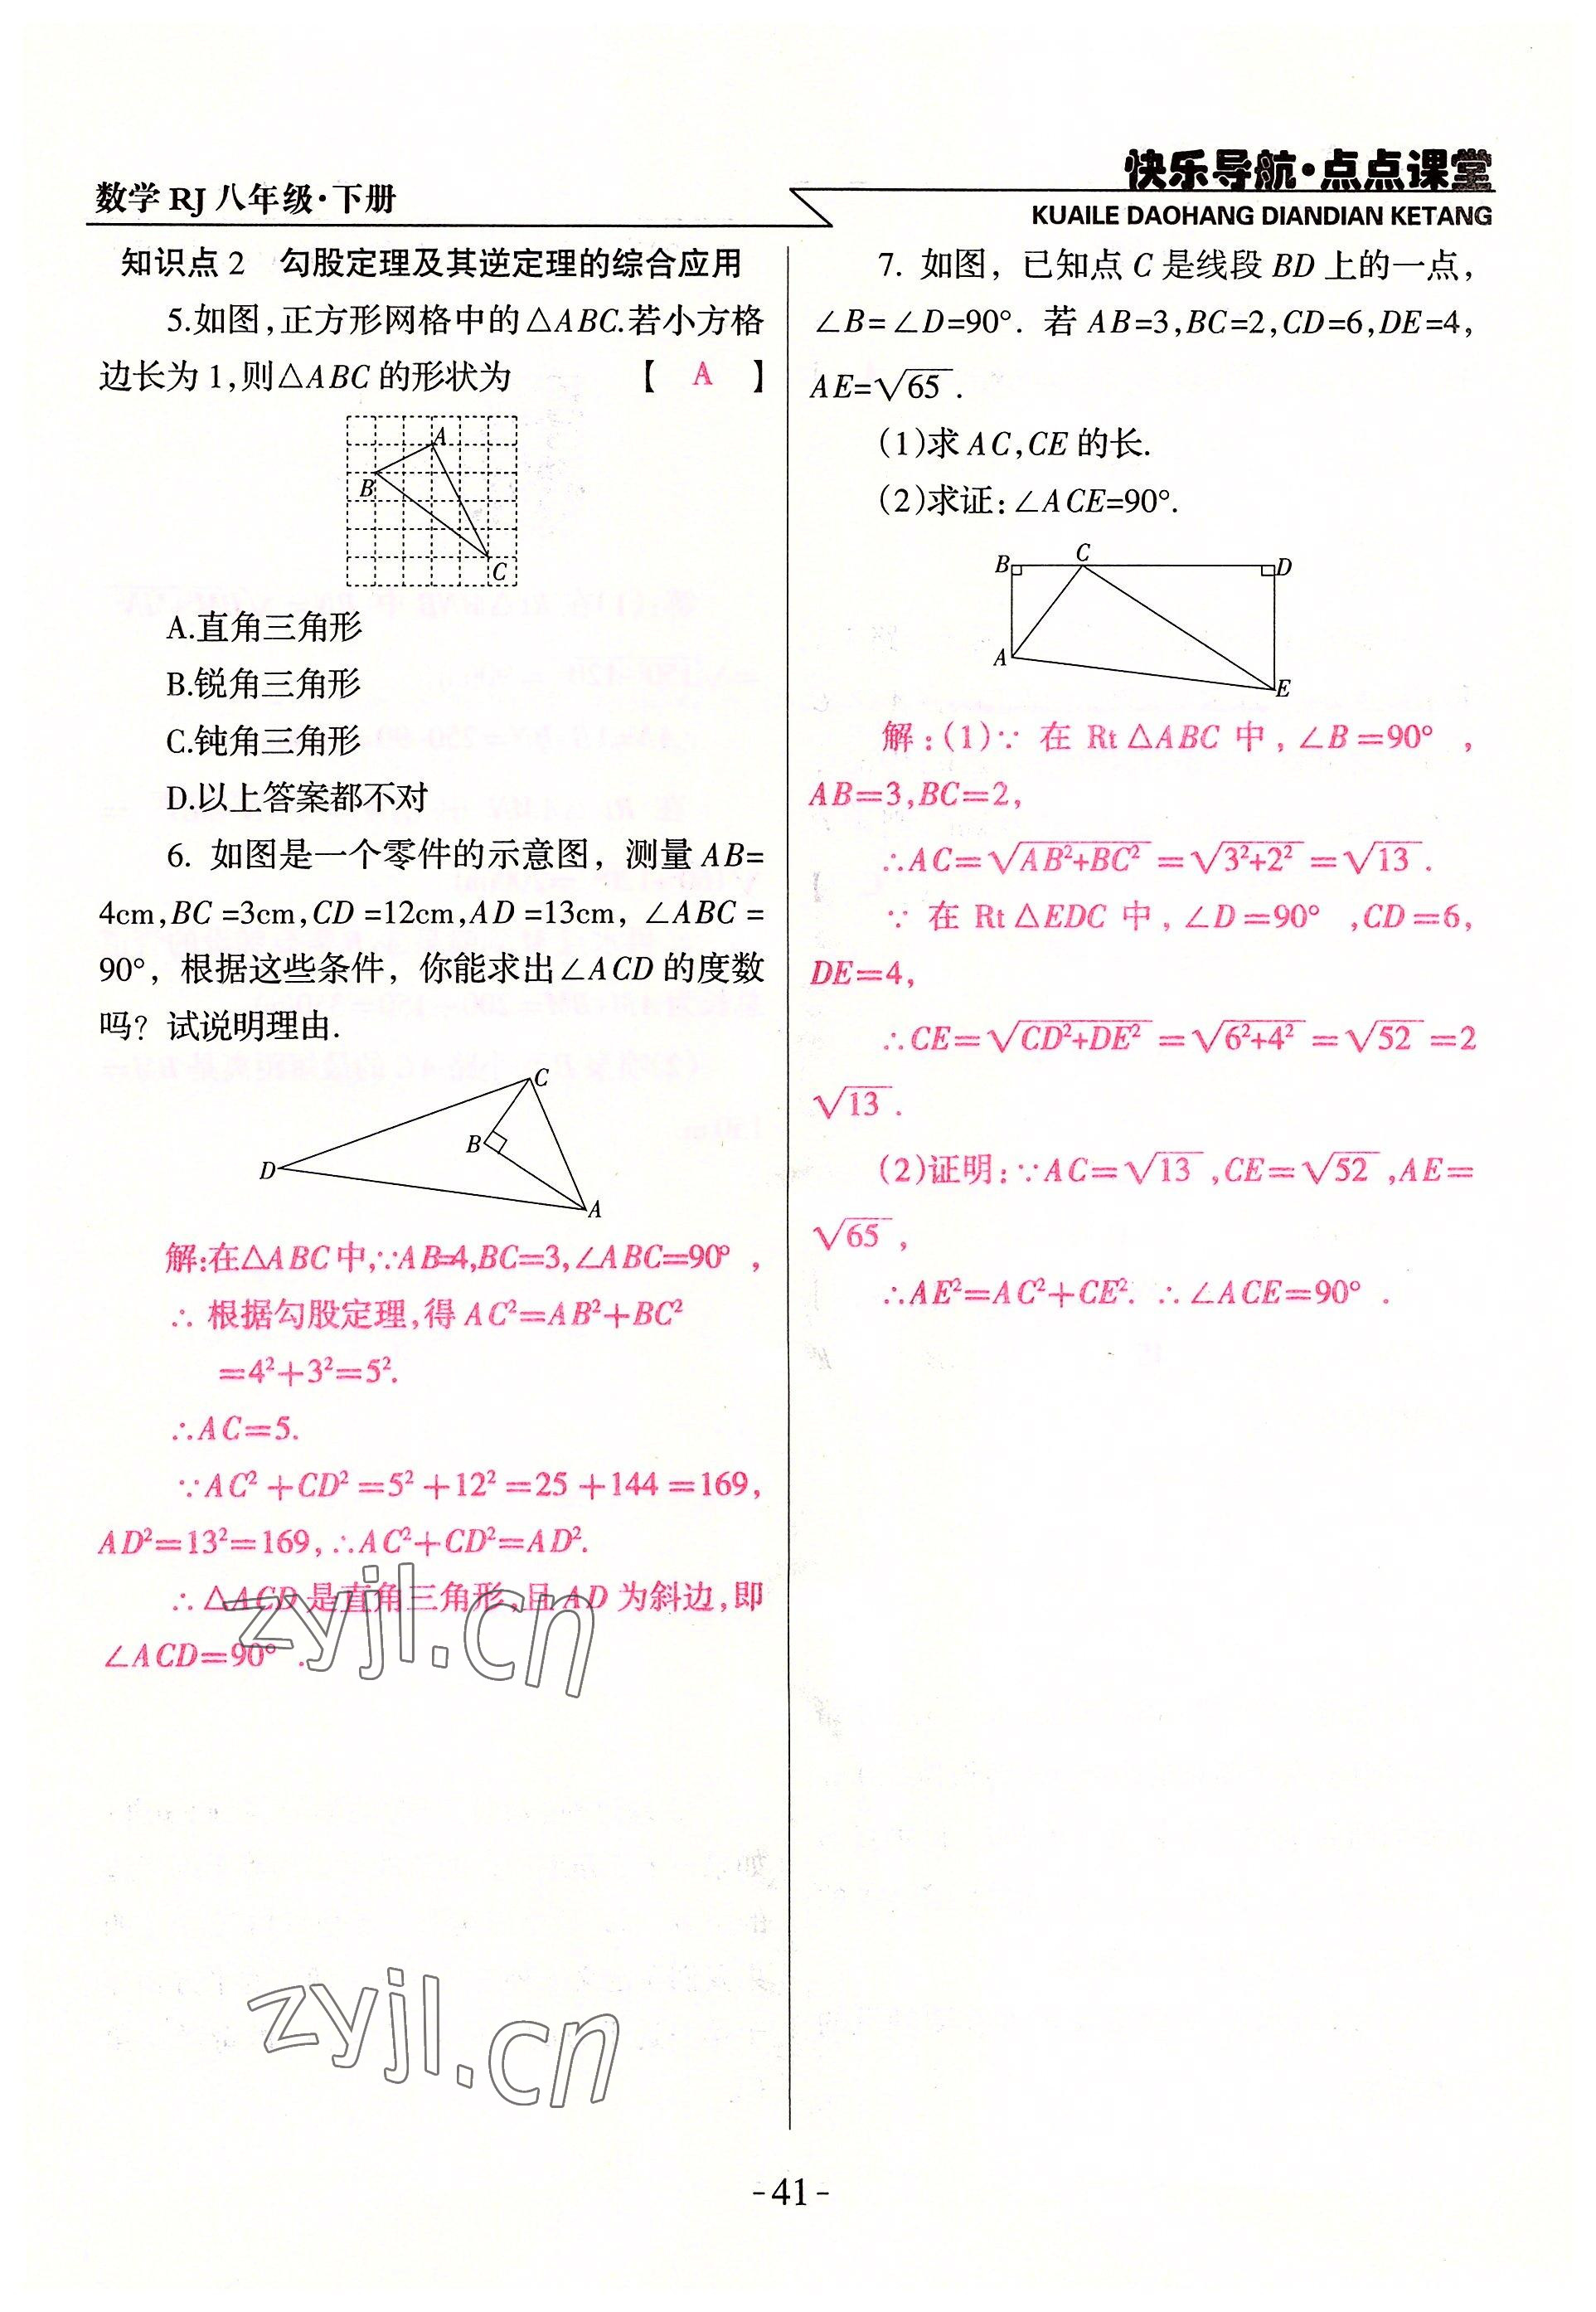 数学 RJ 八年级·下册
快乐导航·点点课堂
KUAILE DAOHANG DIANDIAN KETANG
知识点 2　勾股定理及其逆定理的综合应用
5.如图,正方形网格中的△ABC.若小方格
边长为 1,则△ABC 的形状为 【 A 】
A
B
C
A.直角三角形
B.锐角三角形
C.钝角三角形
D.以上答案都不对
6. 如图是一个零件的示意图，测量 AB=
4cm,BC=3cm,CD=12cm,AD=13cm, ∠ABC=
90°，根据这些条件，你能求出∠ACD 的度数
吗？试说明理由.
C
B
D
A
解:在△ABC 中,∵AB=4,BC=3,∠ABC=90°，
∴ 根据勾股定理,得 AC²=AB²+BC²
=4²+3²=5².
∴AC=5.
∵AC²+CD²=5²+12²=25+144=169,
AD²=13²=169,∴AC²+CD²=AD².
∴△ACD 是直角三角形,且 AD 为斜边,即
∠ACD=90°.
zyjl.cn
zyjl.cn
7. 如图，已知点 C 是线段 BD 上的一点，
∠B=∠D=90°. 若 AB=3,BC=2,CD=6,DE=4,
AE=√65.
(1)求 AC,CE 的长.
(2)求证:∠ACE=90°.
B
C
D
A
E
解:(1)∵ 在 Rt△ABC 中,∠B=90°，
AB=3,BC=2,
∴AC=√AB²+BC²=√3²+2²=√13.
∵ 在 Rt△EDC 中,∠D=90°,CD=6,
DE=4,
∴CE=√CD²+DE²=√6²+4²=√52=2
√13.
(2)证明:∵AC=√13,CE=√52,AE=
√65,
∴AE²=AC²+CE². ∴∠ACE=90°.
-41-